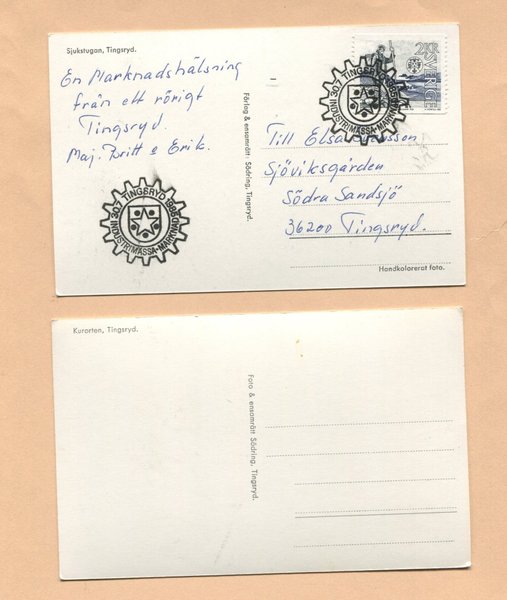 Sjukstugan, Tingsryd.
En Marknadshälsning
från ett rörigt
Tingsryd.
Maj. Britt o Erik.
Förlag & ensamrätt: Södring, Tingsryd.
2 KR
SVERIGE
30.7 TINGSRYD 1986
INDUSTRIMÄSSA-MARKNAD
Till Elsa
Sjöviksgården
Södra Sandsjö
36200 Tingsryd.
30.7 TINGSRYD 1986
INDUSTRIMÄSSA-MARKNAD
Handkolorerat foto.
Kurorten, Tingsryd.
Foto & ensamrätt Södring, Tingsryd.